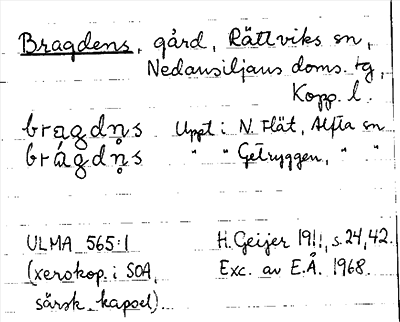 Bragdens, gård, Rättviks sn,
Nedansiljans doms. tg,
Kopp. l.
bragdn̥s Uppt. i N. Flät, Alfta sn
brágdn̥s " " Getryggen, " "
ULMA 565:1 H. Geijer 1911, s. 24, 42.
(xerokop. i SOA, Exc. av E.Å. 1968.
särsk. kapsel).